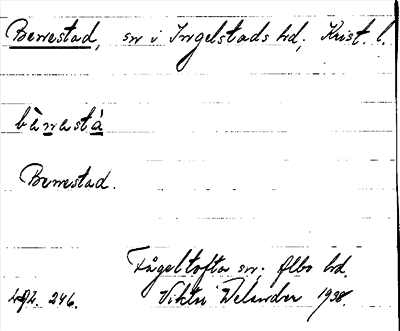 Berrestad, sn i Ingelstads hd, Krist. l.
bèrrastá
Berrestad.
Fågeltofta sn, Albo hd.
246. Viktor Welander 1938.